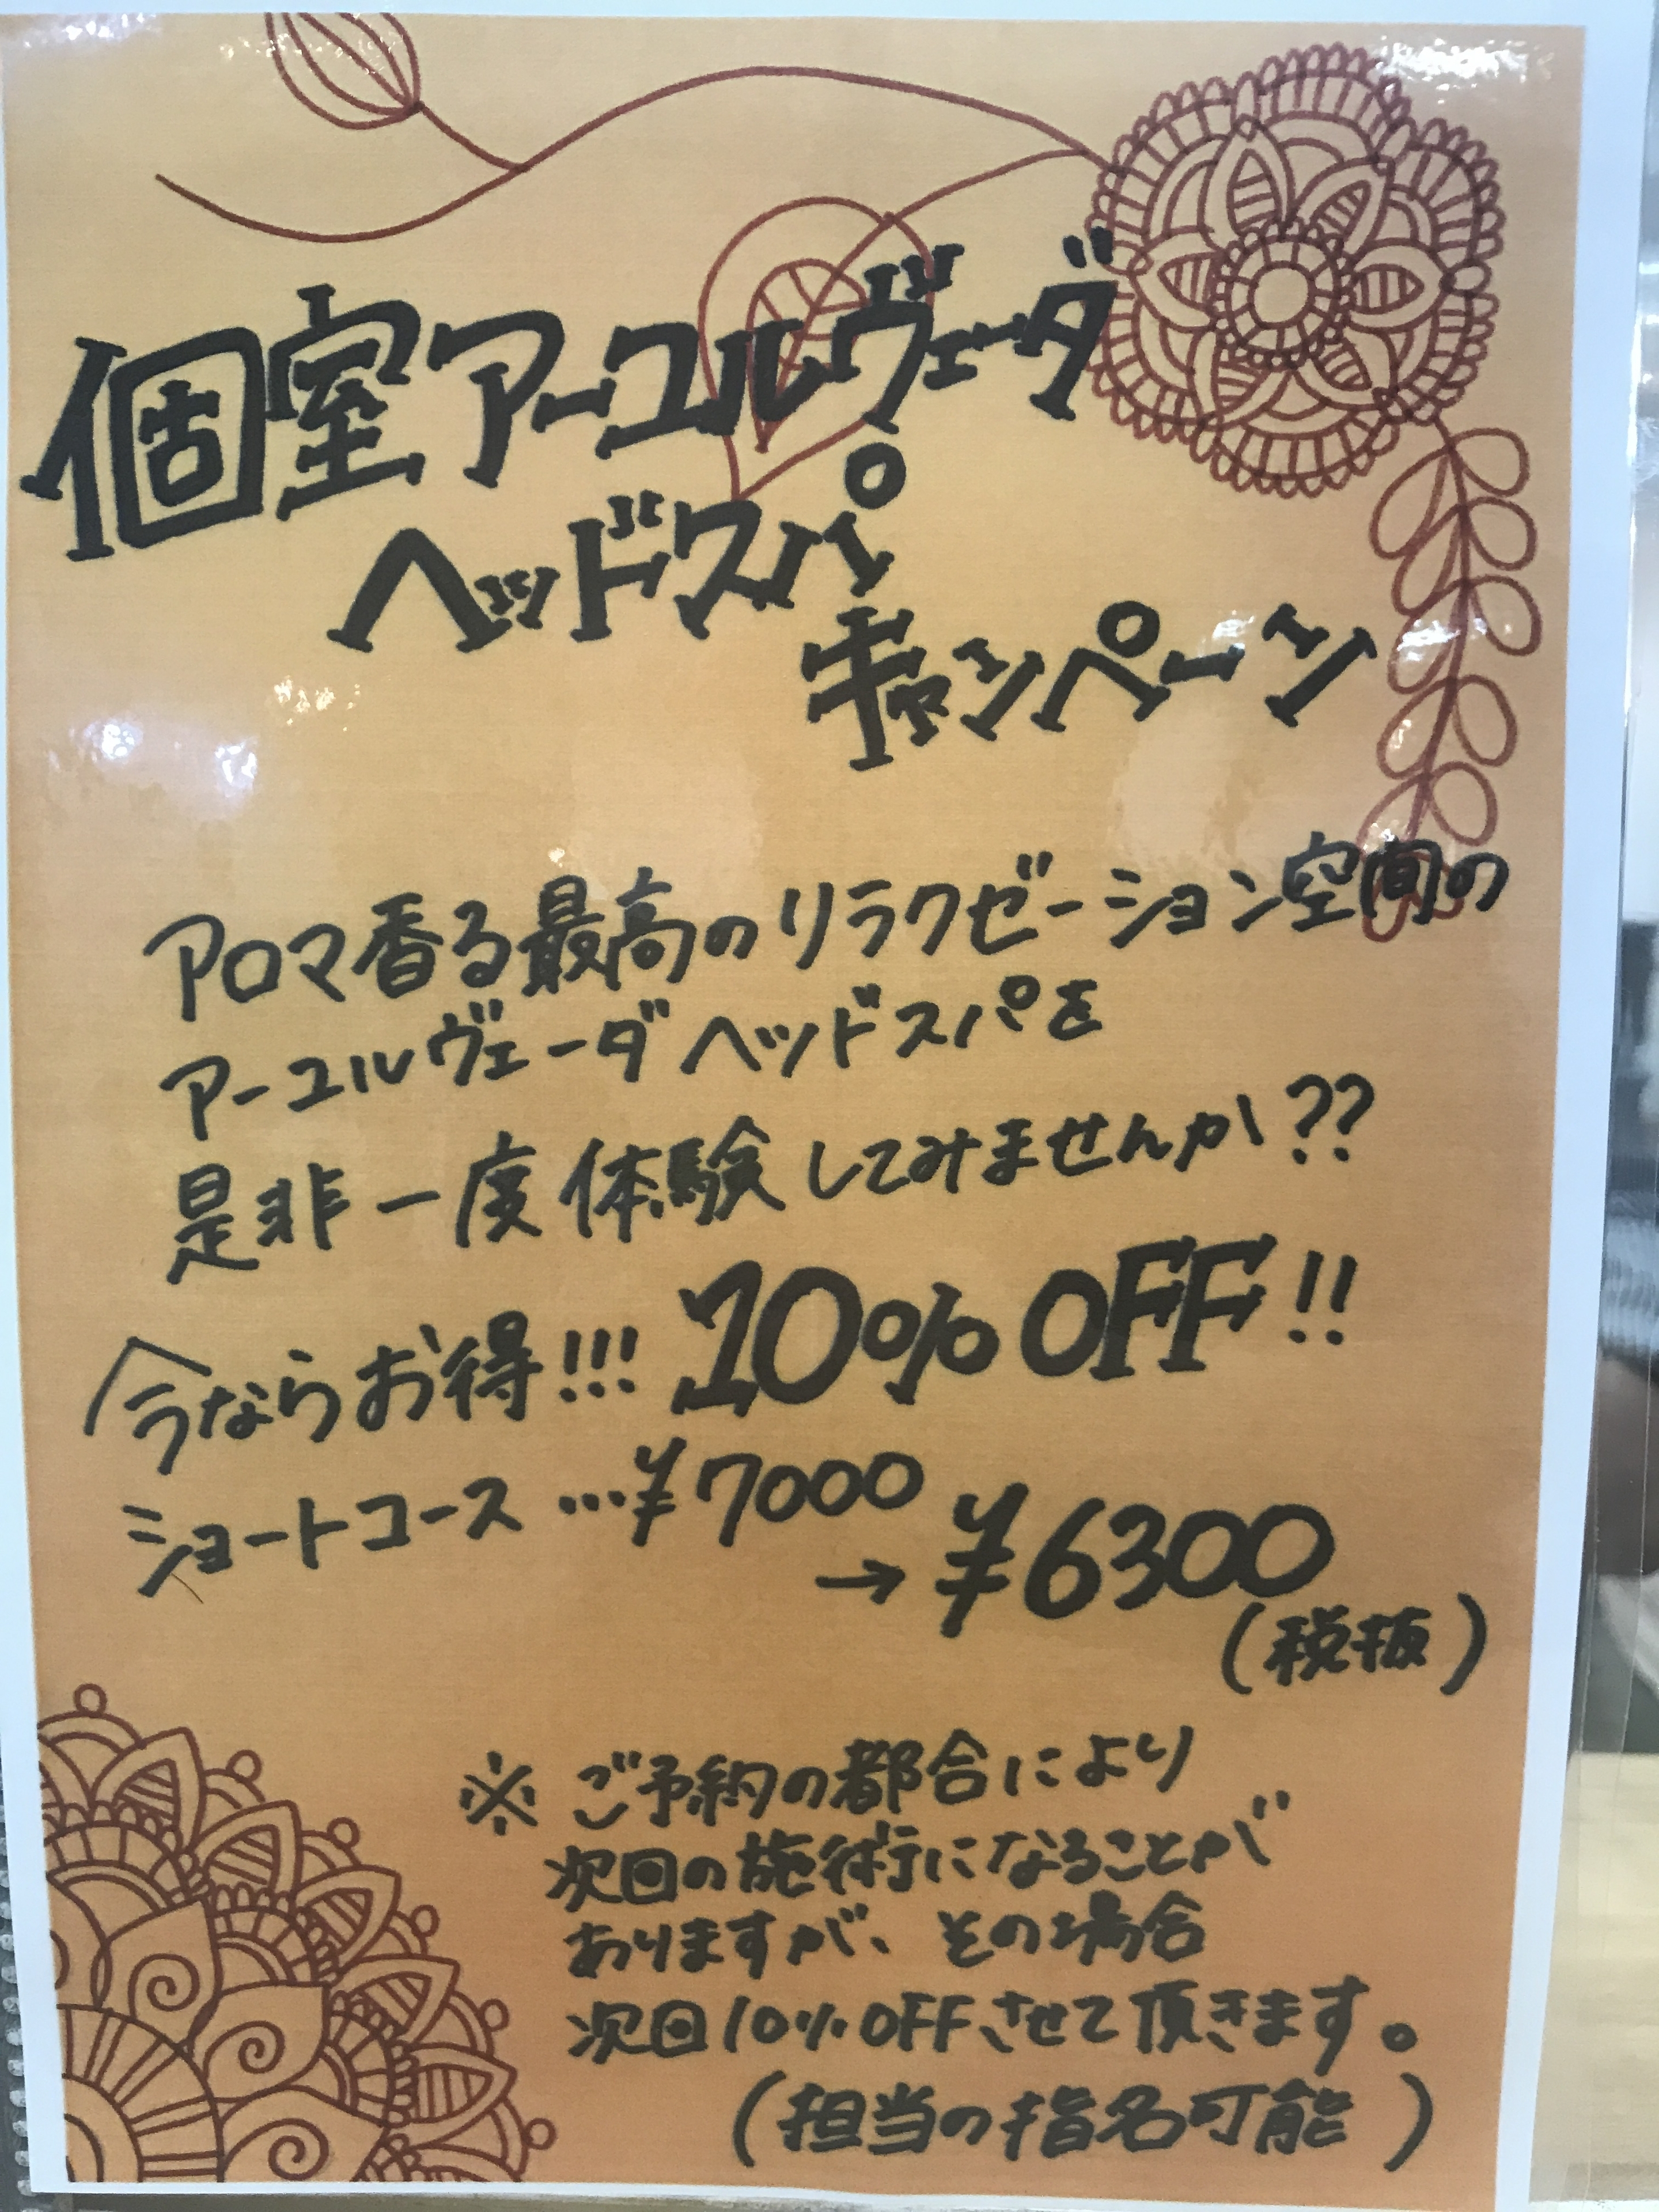 個室アーユルヴェーダ
ヘッドスパ
キャンペーン
アロマ香る最高のリラクゼーション空間の
アーユルヴェーダヘッドスパを
是非一度体験してみませんか??
今ならお得!!! 10%OFF!!
ショートコース…¥7000
→¥6300
(税抜)
※ご予約の都合により
次回の施術になることが
ありますが、その場合
次回10%OFFさせて頂きます。
(担当の指名可能)